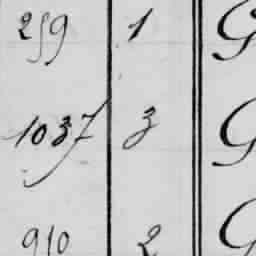 259 1 G
1037 3 G
910 2 G